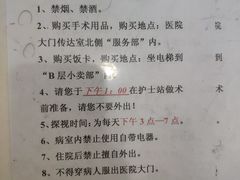 1、禁烟、禁酒。
2、购买手术用品，购买地点：医院
大门传达室北侧“服务部”内。
3、购买饭卡，购买地点：坐电梯到
“B层小卖部”
4、请您于下午1：00在护士站做术
前准备，请您不要外出！
5、探视时间：为每天下午3点—7点。
6、病室内禁止使用自带电器。
7、住院后禁止擅自外出。
8、不得穿病人服出医院大门。
到
到